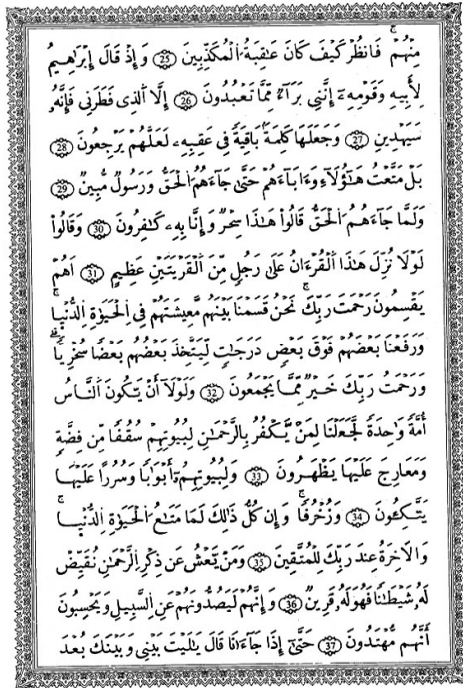 مِنْهُمْ ۖ فَانظُرْ كَيْفَ كَانَ عَاقِبَةُ الْمُكَذِّبِينَ (25) وَإِذْ قَالَ إِبْرَاهِيمُ
لِأَبِيهِ وَقَوْمِهِ إِنَّنِي بَرَاءٌ مِّمَّا تَعْبُدُونَ (26) إِلَّا الَّذِي فَطَرَنِي فَإِنَّهُ
سَيَهْدِينِ (27) وَجَعَلَهَا كَلِمَةً بَاقِيَةً فِي عَقِبِهِ لَعَلَّهُمْ يَرْجِعُونَ (28)
بَلْ مَتَّعْتُ هَٰؤُلَاءِ وَءَابَاءَهُمْ حَتَّىٰ جَاءَهُمُ الْحَقُّ وَرَسُولٌ مُّبِينٌ (29)
وَلَمَّا جَاءَهُمُ الْحَقُّ قَالُوا هَٰذَا سِحْرٌ وَإِنَّا بِهِ كَافِرُونَ (30) وَقَالُوا
لَوْلَا نُزِّلَ هَٰذَا الْقُرْءَانُ عَلَىٰ رَجُلٍ مِّنَ الْقَرْيَتَيْنِ عَظِيمٍ (31) أَهُمْ
يَقْسِمُونَ رَحْمَتَ رَبِّكَ ۚ نَحْنُ قَسَمْنَا بَيْنَهُم مَّعِيشَتَهُمْ فِي الْحَيَوٰةِ الدُّنْيَا ۚ
وَرَفَعْنَا بَعْضَهُمْ فَوْقَ بَعْضٍ دَرَجَاتٍ لِّيَتَّخِذَ بَعْضُهُم بَعْضًا سُخْرِيًّا ۗ
وَرَحْمَتُ رَبِّكَ خَيْرٌ مِّمَّا يَجْمَعُونَ (32) وَلَوْلَا أَن يَكُونَ النَّاسُ
أُمَّةً وَاحِدَةً لَّجَعَلْنَا لِمَن يَكْفُرُ بِالرَّحْمَٰنِ لِبُيُوتِهِمْ سُقُفًا مِّن فِضَّةٍ
وَمَعَارِجَ عَلَيْهَا يَظْهَرُونَ (33) وَلِبُيُوتِهِمْ أَبْوَابًا وَسُرُرًا عَلَيْهَا
يَتَّكِـُٔونَ (34) وَزُخْرُفًا ۚ وَإِن كُلُّ ذَٰلِكَ لَمَا مَتَاعُ الْحَيَوٰةِ الدُّنْيَا ۚ
وَالْآخِرَةُ عِندَ رَبِّكَ لِلْمُتَّقِينَ (35) وَمَن يَعْشُ عَن ذِكْرِ الرَّحْمَٰنِ نُقَيِّضْ
لَهُ شَيْطَانًا فَهُوَ لَهُ قَرِينٌ (36) وَإِنَّهُمْ لَيَصُدُّونَهُمْ عَنِ السَّبِيلِ وَيَحْسِبُونَ
أَنَّهُم مُّهْتَدُونَ (37) حَتَّىٰ إِذَا جَاءَانَا قَالَ يَالَيْتَ بَيْنِي وَبَيْنَكَ بُعْدَ